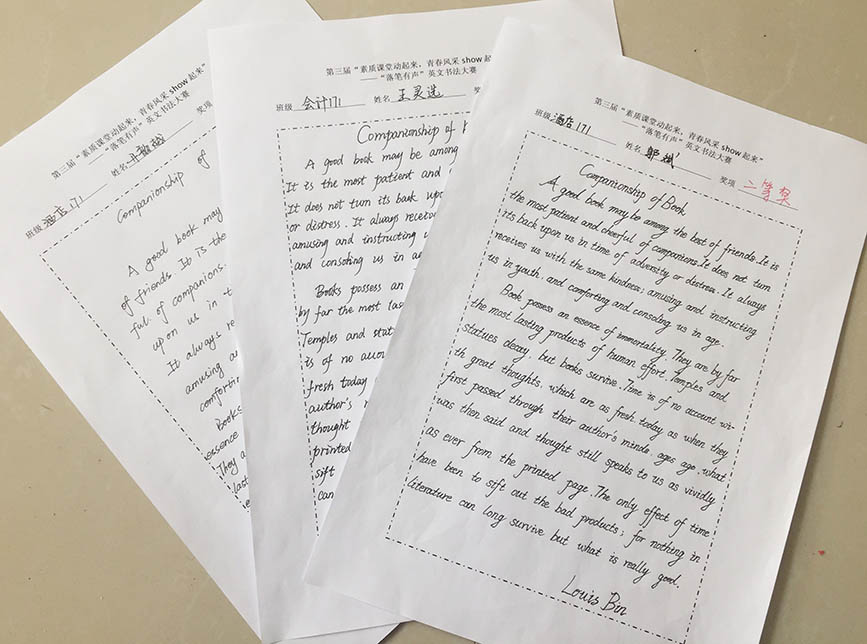 第三届“素质课堂动起来，青春风
——“落笔有声”英文书法大赛
班级 酒店171 姓名
Companionship of
A good book may
of friends. It is the
ful of companions.
upon us in t
It always re
amusing an
comfortin
Books
essence
They a
last
第三届“素质课堂动起来，青春风采 show 起来”
——“落笔有声”英文书法大赛
班级 会计171 姓名 王灵 奖
Companionship of
A good book may be among
It is the most patient and
It does not turn its back upo
or distress. It always receive
amusing and instructing u
and consoling us in a
Books possess an
by far the most las
Temples and stat
is of no accou
fresh today
author's
thought
printed
sift
can
第三届“素质课堂动起来，青春风采 show 起来”
——“落笔有声”英文书法大赛
班级 酒店171 姓名 郭斌 奖项 二等奖
Companionship of Book
A good book may be among the best of friends. It is
the most patient and cheerful of companions. It does not turn
its back upon us in time of adversity or distress. It always
receives us with the same kindness; amusing and instructing
us in youth, and comforting and consoling us in age.
Book possess an essence of immortality. They are by far
the most lasting products of human effort. Temples and
statues decay, but books survive. Time is of no account wi-
th great thoughts, which are as fresh today as when they
first passed through their author's minds, ages age. what
was then said and thought still speaks to us as vividly
as ever from the printed page. The only effect of time
have been to sift out the bad products; for nothing in
literature can long survive but what is really good.
Louis Bin